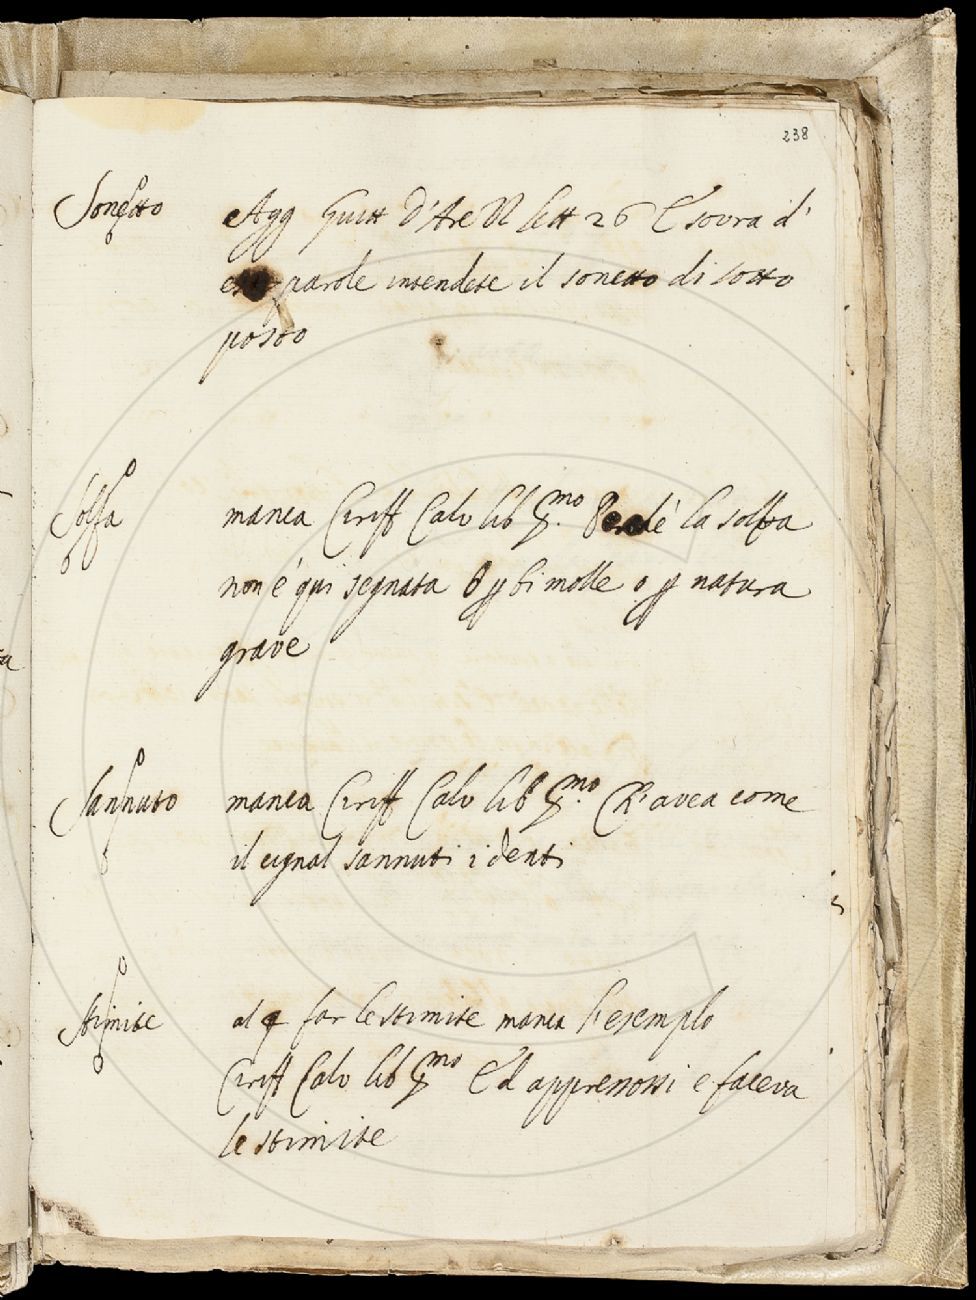 238
Sonetto Agg Guitt d'Are lett 26 E sovra d'
parole intendete il sonetto di sotto
posto
Solfa manca Ciriff Calv lib pmo la solfa
non é qui segnata O p bi molle o p natura
grave
Sannuto manca Ciriff Calv lib pmo Ch'avea come
il cignal sannuti i denti
Stimite al 4 far le stimite manca l'esemplo
Ciriff Calv lib pmo E faceva
le stimite